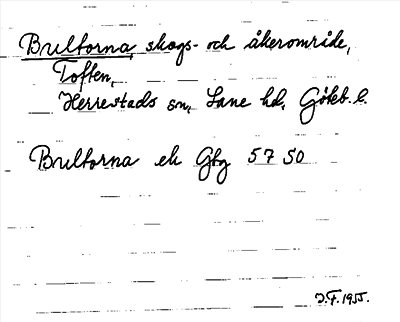 Bultorna, skogs- och åkerområde,
Toften,
Herrestads sn, Lane hd, Göteb. l.
Bultorna ek Gbg 5750
J.F. 1955.